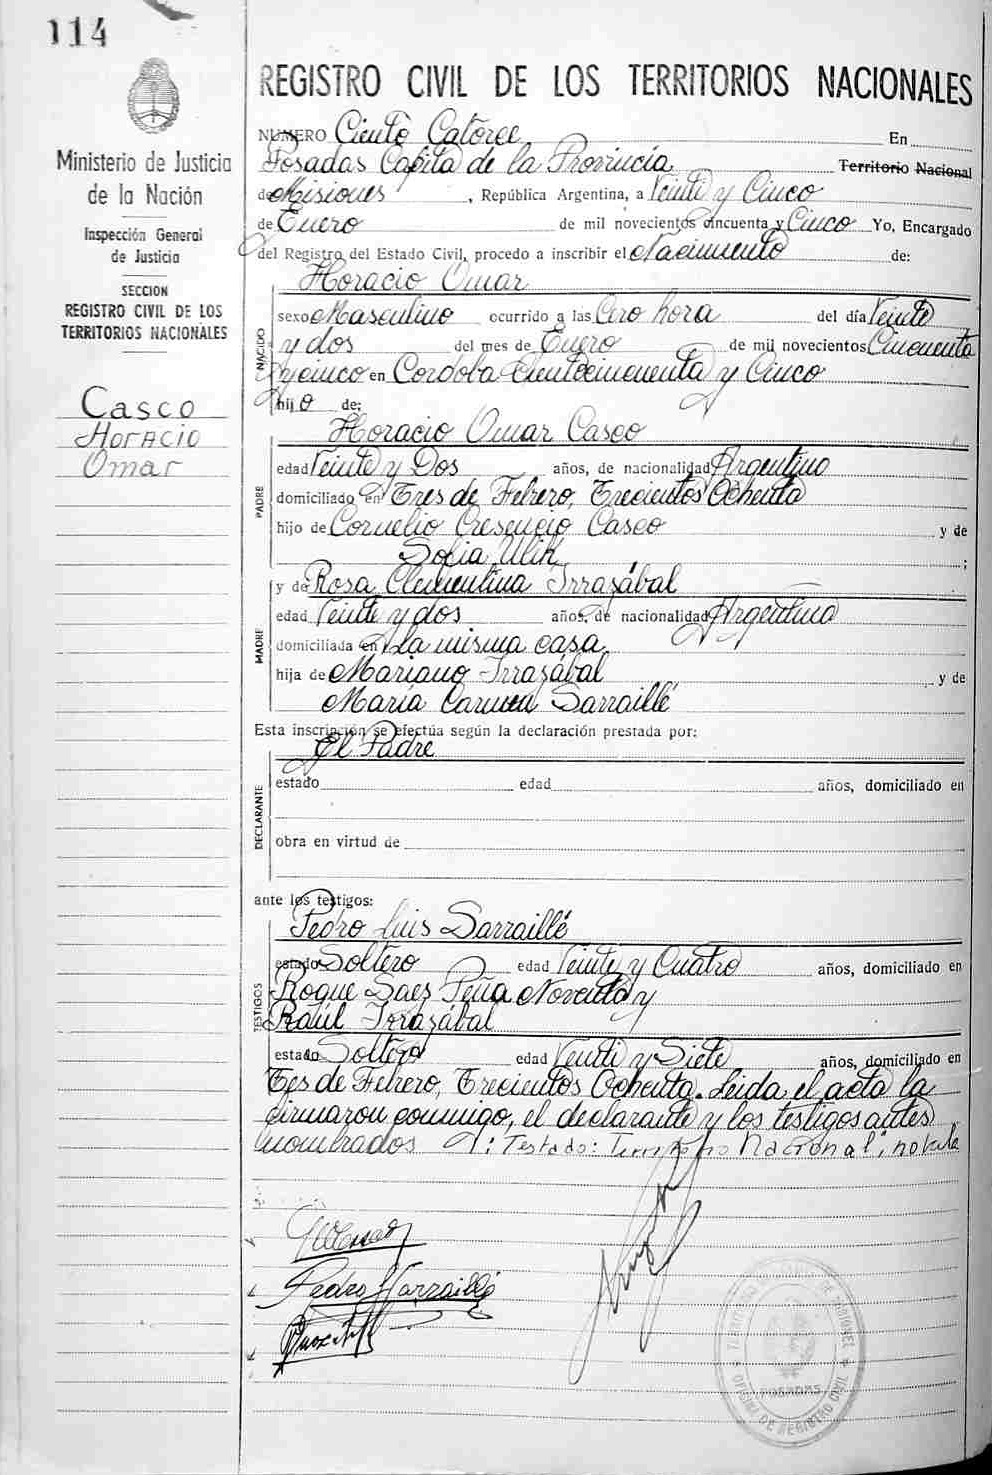 114
Ministerio de Justicia
de la Nación
Inspección General
de Justicia
SECCION
REGISTRO CIVIL DE LOS
TERRITORIOS NACIONALES
Casco
Horacio
Omar
REGISTRO CIVIL DE LOS TERRITORIOS NACIONALES
NUMERO Ciento Catorce En
Posadas Capital de la Provincia Territorio Nacional
de Misiones, República Argentina, a Veinte y Cinco
de Enero de mil novecientos cincuenta y Cinco Yo, Encargado
del Registro del Estado Civil, procedo a inscribir el Nacimiento de:
Horacio Omar
NACIDO
sexo Masculino ocurrido a las Cero hora del día Veinte
y dos del mes de Enero de mil novecientos Cincuenta
y cinco en Cordoba Cientocincuenta y Cinco
hijo de:
Horacio Omar Casco
PADRE
edad Veinte y Dos años, de nacionalidad Argentino
domiciliado en Tres de Febrero, Trecientos Ochenta
hijo de Cornelio Cresencio Casco y de
Sofia Ulik;
y de Rosa Clementina Irrazábal
MADRE
edad Veinte y dos años, de nacionalidad Argentina
domiciliada en la misma casa.
hija de Mariano Irrazábal y de
María Carmen Sarraillé
Esta inscripción se efectúa según la declaración prestada por:
El Padre
DECLARANTE
estado edad años, domiciliado en
obra en virtud de
ante los testigos:
Pedro Luis Sarraillé
TESTIGOS
estado Soltero edad Veinte y Cuatro años, domiciliado en
Roque Saez Peña Noventa y
Raúl Irrazábal
estado Soltero edad Veinti y Siete años, domiciliado en
Tes de Febrero, Trecientos Ochenta. Leida el acta la
firmaron conmigo, el declarante y los testigos antes
nombrados Testado: Territorio Nacional", no vale
Pedro Sarraillé
POSADAS
OFICINA DE REGISTRO CIVIL